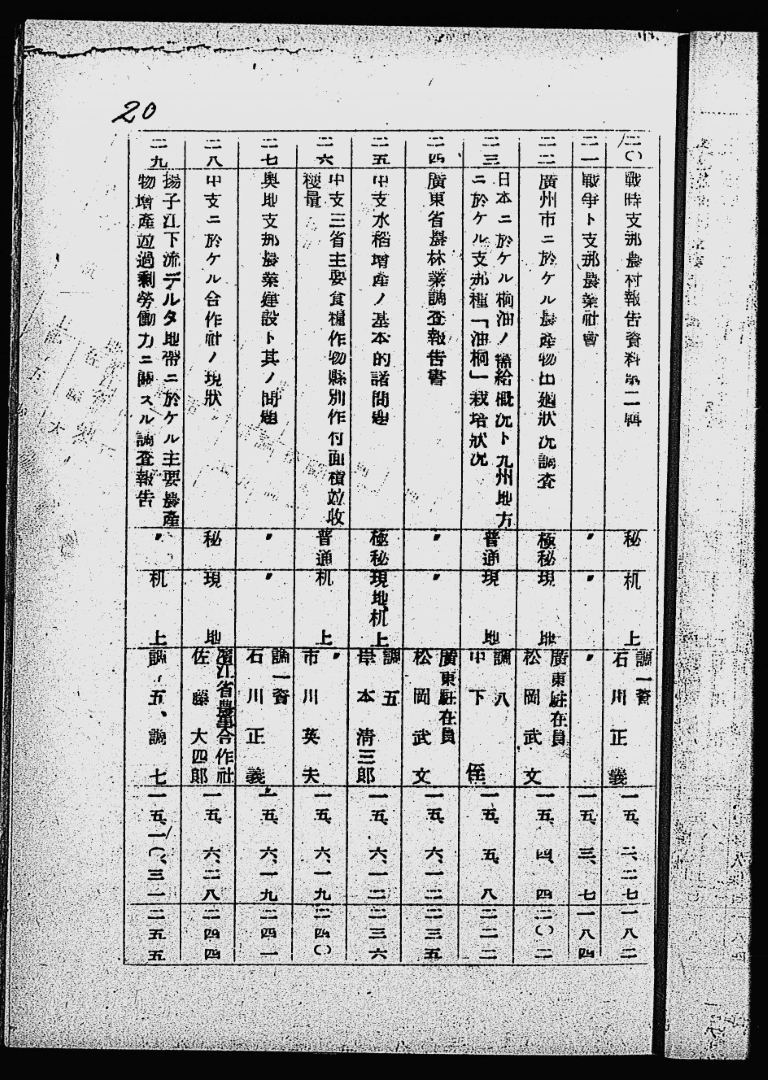 20
二〇 戰時支那農村報告資料第二輯 秘 机上 調一資 石川正義 一五、二、二七 一八二
二一 戰爭ト支那農業社會 〃 〃 〃 一五、三、七 一八四
二二 廣州市ニ於ケル農産物出廻狀況調査 極秘 現地 廣東駐在員 松岡武文 一五、四、四 二〇二
二三 日本ニ於ケル桐油ノ需給槪況ト九州地方
ニ於ケル支那種「油桐」栽培狀況 普通 現地 調八 中下 一五、五、八 二二二
二四 廣東省農林業調査報告書 〃 〃 廣東駐在員 松岡武文 一五、六、一二 二三五
二五 中支水稻增産ノ基本的諸問題 極秘 現地机上 調五 岸本淸三郎 一五、六、一二 二三六
二六 中支三省主要食糧作物縣別作付面積竝收
穫量 普通 机上 〃 市川英夫 一五、六、一九 二四〇
二七 奧地支那農業建設ト其ノ問題 〃 〃 調一資 石川正義 一五、六、一九 二四一
二八 中支ニ於ケル合作社ノ現狀 秘 現地 濱江省農事合作社 佐藤大四郎 一五、六、二八 二四四
二九 揚子江下流デルタ地帶ニ於ケル主要農產
物增產竝過剩勞働力ニ關スル調査報告 〃 机上 調五、調七 一五、一〇、三一 二五五